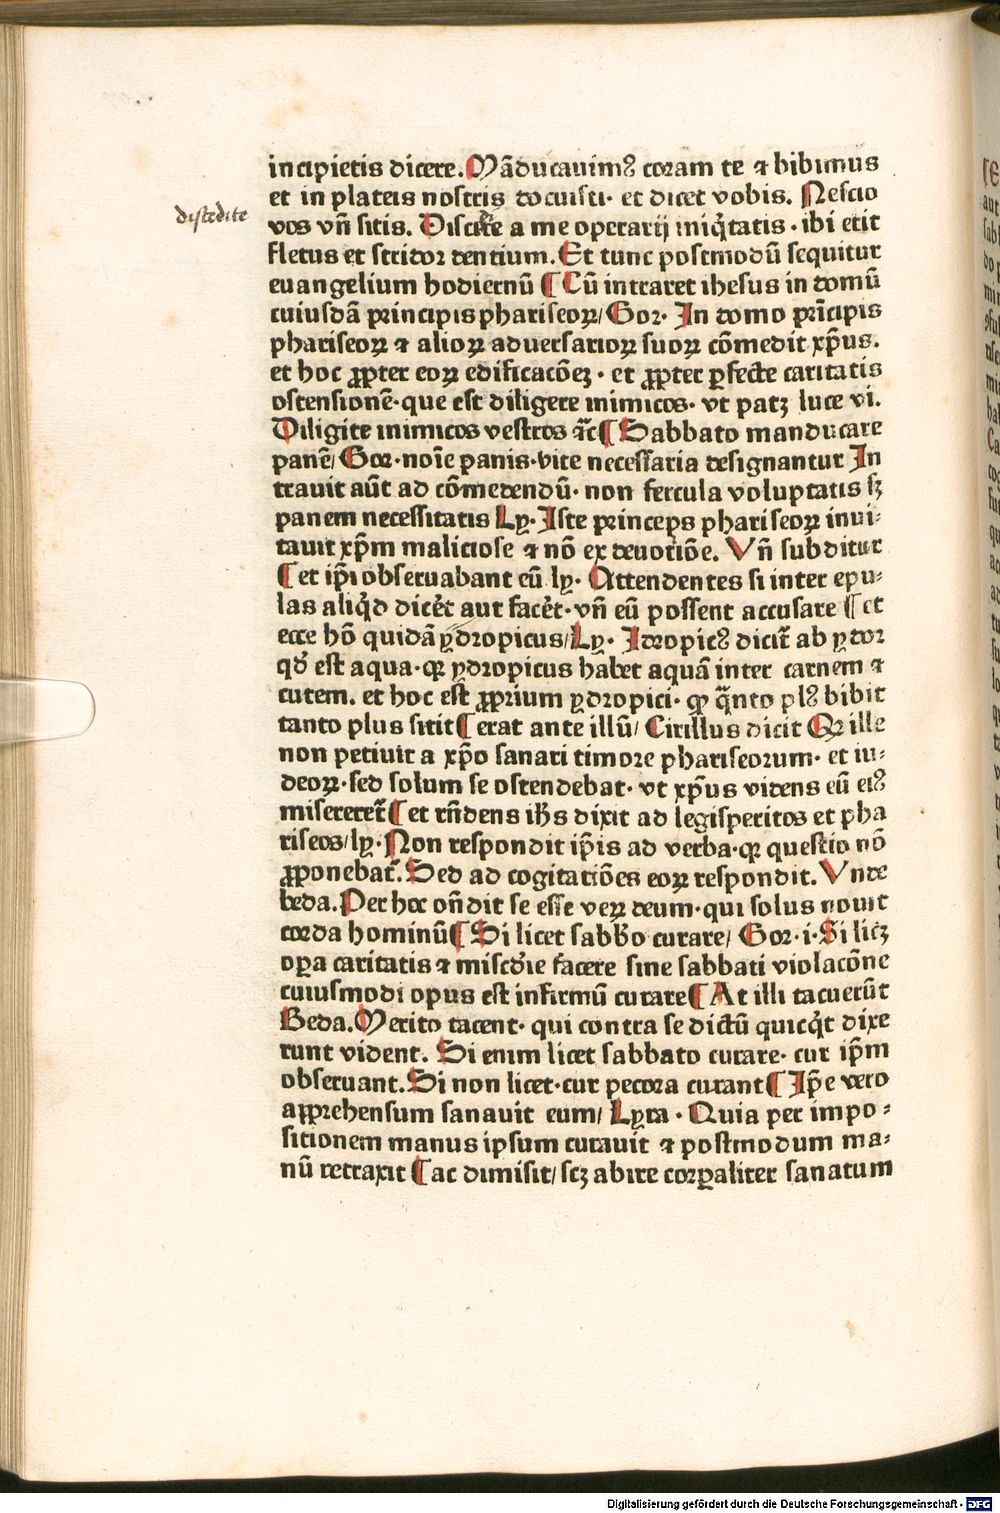 incipietis dicere. Mãducauimꝰ coram te ⁊ bibimus
et in plateis nostris docuisti· et dicet vobis. Nescio
distedite
vos vñ sitis. Discite a me operarij iniq̃tatis · ibi erit
fletus et stridor dentium. Et tunc postmodũ sequitur
euangelium hodiernũ ¶ Cũ intraret ihesus in domũ
cuiusdã principis phariseoꝝ/ Gor· In domo prĩcipis
phariseoꝝ ⁊ alioꝝ aduersarioꝝ suoꝝ cõmedit xp̃us.
et hoc ꝓpter eoꝝ edificacõeꝫ · et ꝓpter ꝑfecte caritatis
ostensionẽ· que est diligere inimicos· vt patꝫ luce vi.
Diligite inimicos vestros ⁊c̃ ¶ Sabbato manducare
panẽ/ Gor· noĩe panis· vite necessaria designantur In
trauit aũt ad cõmedendũ· non fercula voluptatis sꝫ
panem necessitatis Ly· Iste princeps phariseoꝝ inui⸗
tauit xp̃m maliciose ⁊ nõ ex deuotiõe. Vñ subditur
¶ et ip̃i obseruabant eũ ly· Attendentes si inter epu⸗
las aliq̃d dicẽt aut facẽt· vñ eũ possent accusare ¶ et
ecce hõ quidã ydropicus/ Ly· Idropicꝰ dicit̃ ab ydor
qď est aqua· qꝛ ydropicus habet aquã inter carnem ⁊
cutem. et hoc est ꝓprium ydropici· ꝙ q̃nto plꝰ bibit
tanto plus sitit ¶ erat ante illũ/ Cirillus dicit Qꝛ ille
non petiuit a xp̃o sanari timore phariseorum· et iu⸗
deoꝝ· sed solum se ostendebat· vt xp̃us videns eũ eiꝰ
misereret̃ ¶ et rñdens ih̃s dixit ad legisperitos et pha
riseos/ ly· Non respondit ip̃is ad verba· qꝛ questio nõ
ꝓponebat̃. Sed ad cogitatiões eoꝝ respondit. Vnde
beda. Per hoc oñdit se esse veꝝ deum· qui solus nouit
corda hominũ ¶ Si licet sabb̃o curare/ Gor· i· Si licꝫ
oꝑa caritatis ⁊ misc̃die facere sine sabbati violacõne
cuiusmodi opus est infirmũ curare ¶ At illi tacuerũt
Beda. Merito tacent· qui contra se dictũ quicq̃d dixe
runt vident. Si enim licet sabbato curare· cur ip̃m
obseruant. Si non licet· cur pecora curant ¶ Ip̃e vero
apprehensum sanauit eum/ Lyra · Quia per impo⸗
sitionem manus ipsum curauit ⁊ postmodum ma⸗
nũ retraxit ¶ ac dimisit/ scꝫ abire corꝑaliter sanatum
Digitalisierung gefördert durch die Deutsche Forschungsgemeinschaft - DFG